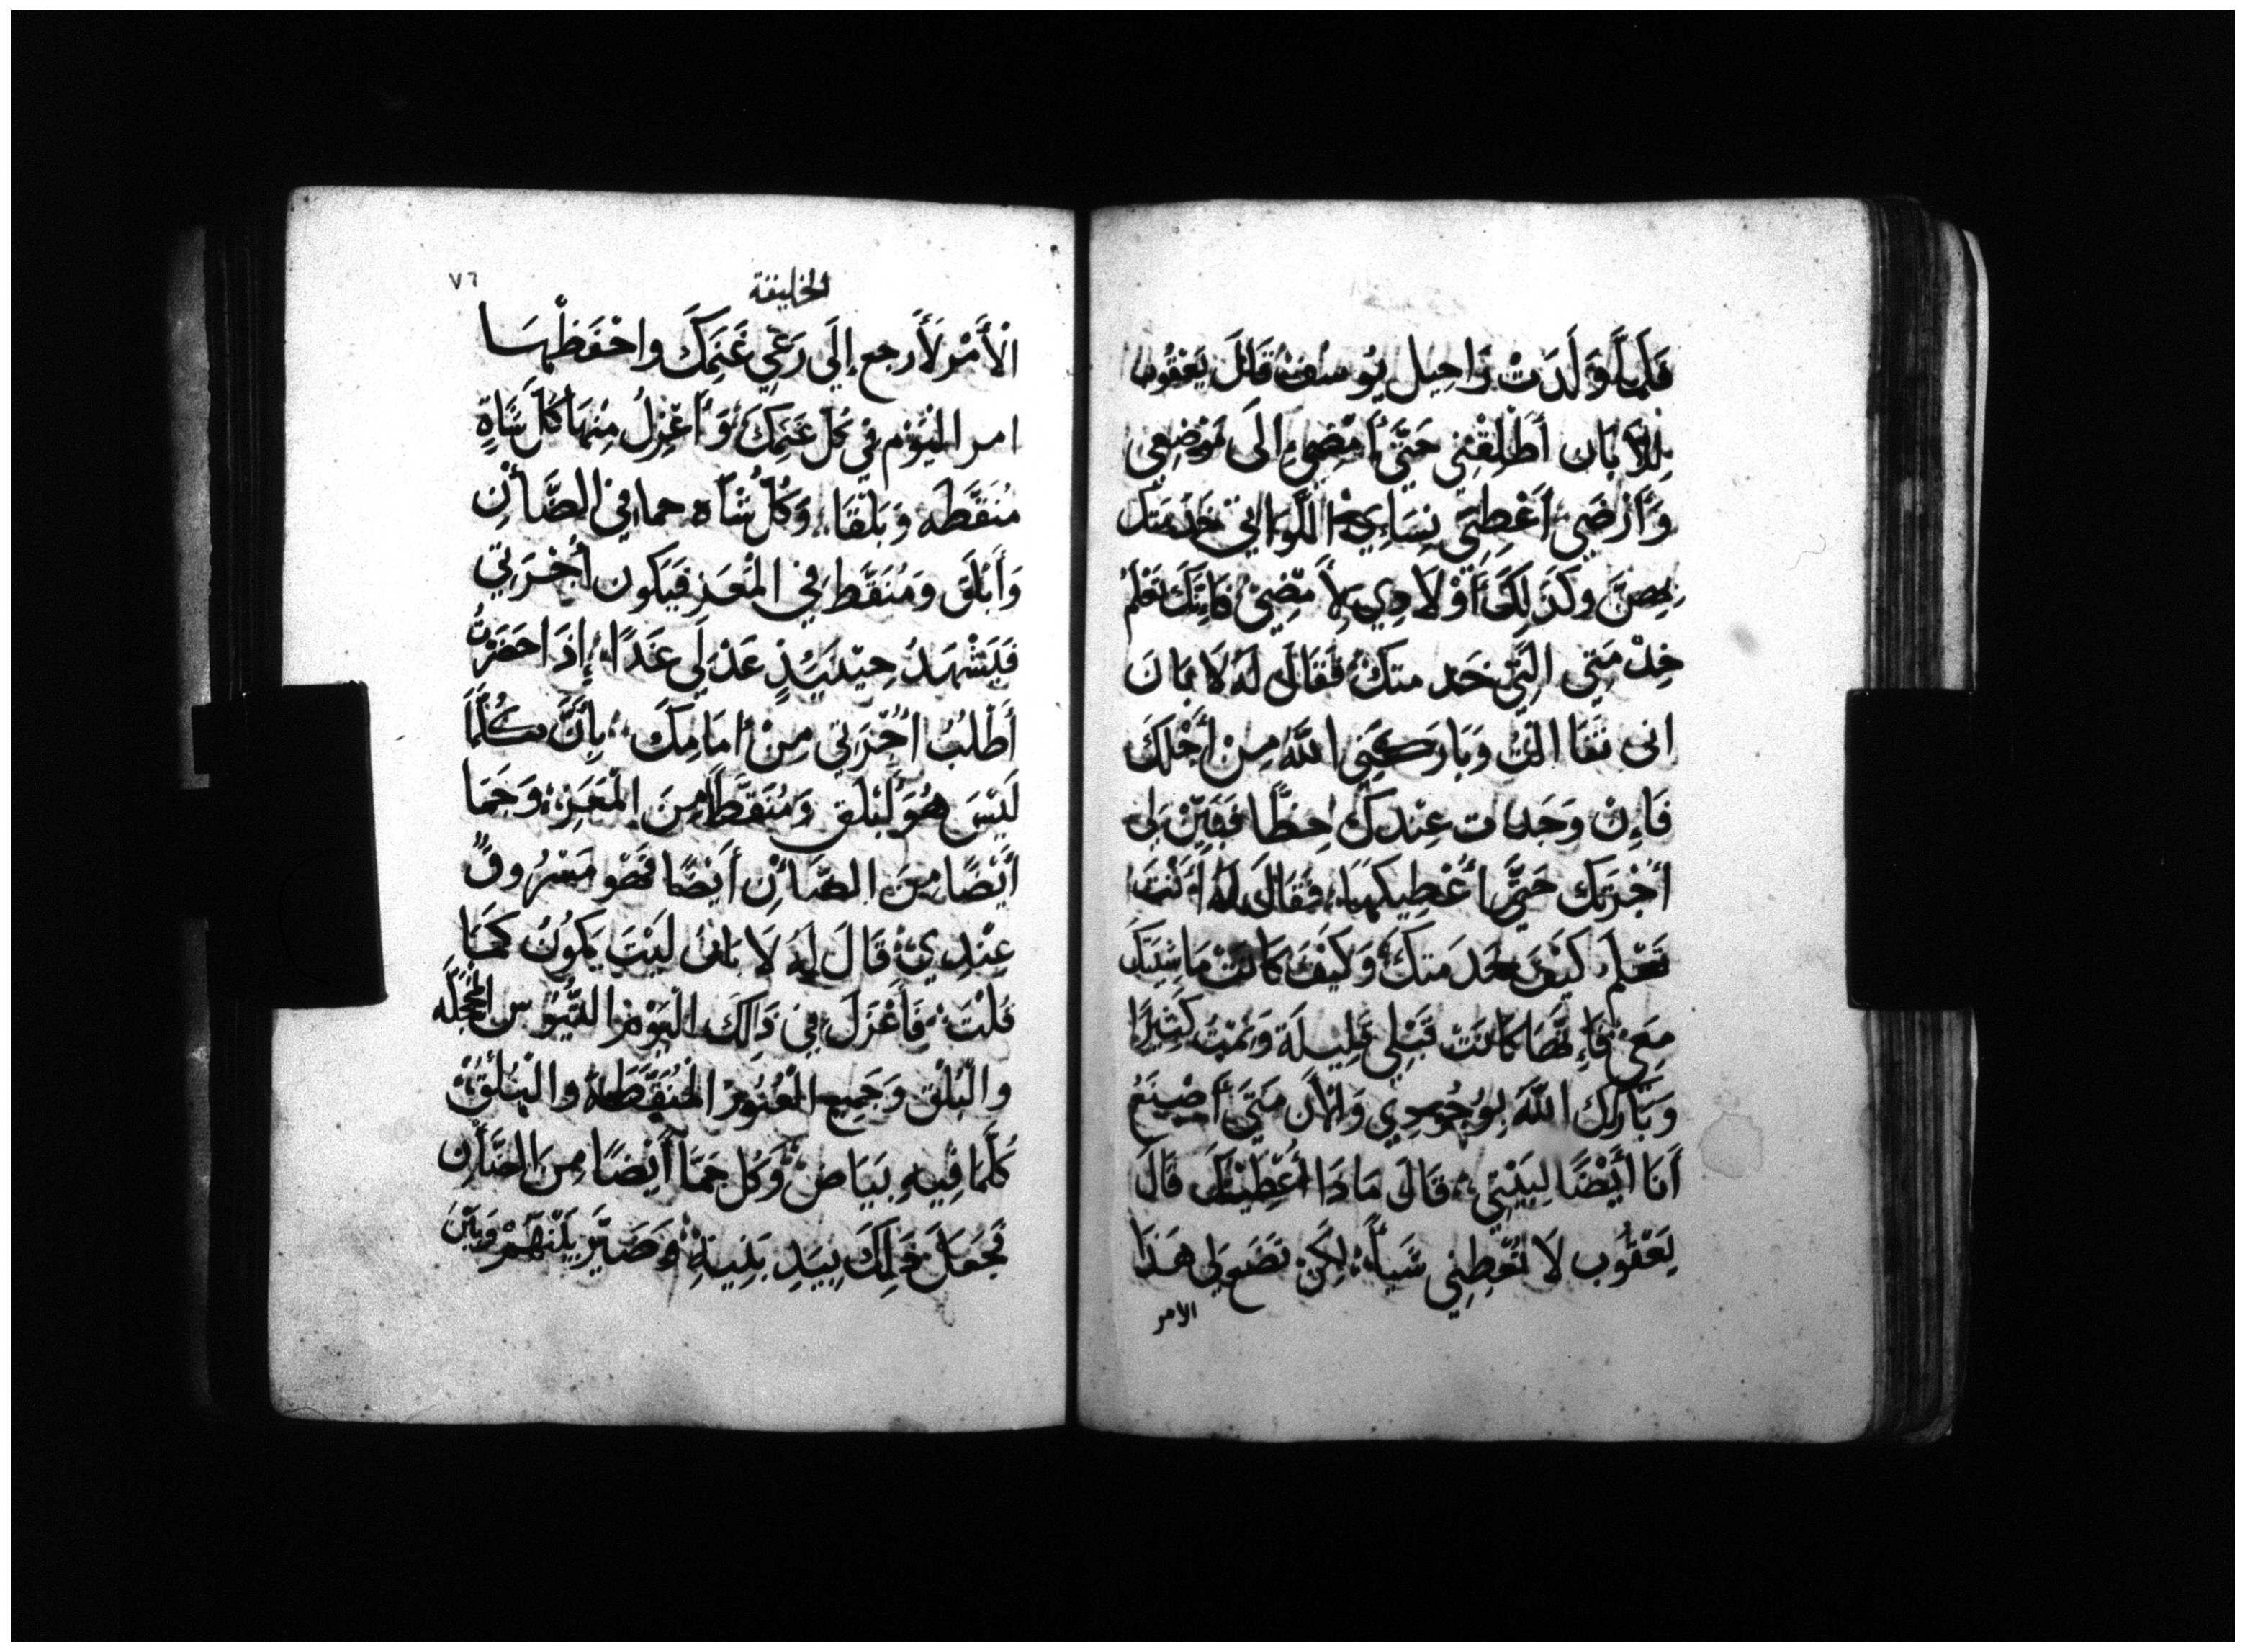 فَلَمَّا وَلَدَتْ رَاحِيل يُوسُفَ قَالَ يَعْقُوب
لِلَابَان أَطْلِقْنِي حَتَّى أَمْضِي إِلَى مَوْضِعِي
وَأَرْضِي أَعْطِنِي نِسَاءِي اللَّوَاتِي خَدَمْتَك
بِهِنَّ وَكَذَلِكَ أَوْلَادِي لأَمْضِيَ فَإِنَّكَ تَعْلَمُ
خِدْمَتِي الَّتِي خَدَمتكَ فَقَالَ لَهُ لَابَانَ
انى وَبَارَكَنِي اللَّهُ مِنْ أَجْلِكَ
فَإِنْ وَجَدت عِنْدكَ حِظًّا فَبَيِّنْ لِي
أُجْرَتك حَتَّى أُعْطِيكهَا فَقَالَ لَهُ أَنْتَ
تَعْلَم كَيْفَ خَدَمتكَ وَكَيْفَ كَانَتْ مَاشِيَتكَ
مَعِي فَإِنَّهَا كَانَتْ قَبْلِي قَلِيلَة وَنَمَتْ كَثِيرًا
وَبَارَكَ اللَّهَ بِوُجُودِي وَالْأَن مَتَى أَصْنَعُ
أَنَا أَيْضًا لِبَيْتِي قَالَ مَاذَا أُعْطِيْكَ قَالَ
يَعْقُوب لَا تُعْطِنِي شَيأً لَكِنْ تَضَع لِي هَذَا
الامر
الخليقة
٧٦
الْأَمْر لَأَرجع إِلَى رَعْي غَنَمَكَ واحْفَظْهَا
امر الْيَوْم فِي كُل غَنَمِكَ وَأَعْزِلُ مِنْهَا كُلَّ شَاةٍ
مُنَقَّطَه وَبَلْقَا وَكُلُّ شَاه حما فِي الضَّأْنِ
وَأَبْلَقَ وَمُنَقَّطَ فِي الْمَعَز فَيَكُون أُجْرَتِي
فَيَشْهَدُ حِيْنَيِذٍ عَدْلِي غَدًا إِذَا حَضَرْتُ
أَطْلُبُ أُجْرَتِي مِنْ أَمَامِكَ بِأَنَّ كُلَّمَا
لَيْسَ هُوَ أَبْلَق وَمُنَقَّطًا مِنَ الْمَعَزِ وَحَمَا
أَيْضًا مِنَ الضَّأْنِ أَيْضًا فَهَو مَسْرُوقٌ
عِنْدِي قَالَ لَهُ لَابَان لَيْتَ يَكُونُ كَمَا
قُلْتَ فَأَعْزَلَ فِي ذَالِكَ الْيَوْم التُّيُوس الْمُحَجَّلَه
والْبُلْق وَجَمِيع الْعُنُوز الْمُنَقَّطَة والْبُلْق
كُلَّمَا فِيهِ بَيَاض وَكُل حَمَا أَيْضًا مِنَ الضَّأْن
فَجَعَلَ ذَلِكَ بِيَدِ بَنِيهِ وَصَيَّرَ بَيْنَهُمْ وَبَيْنَ